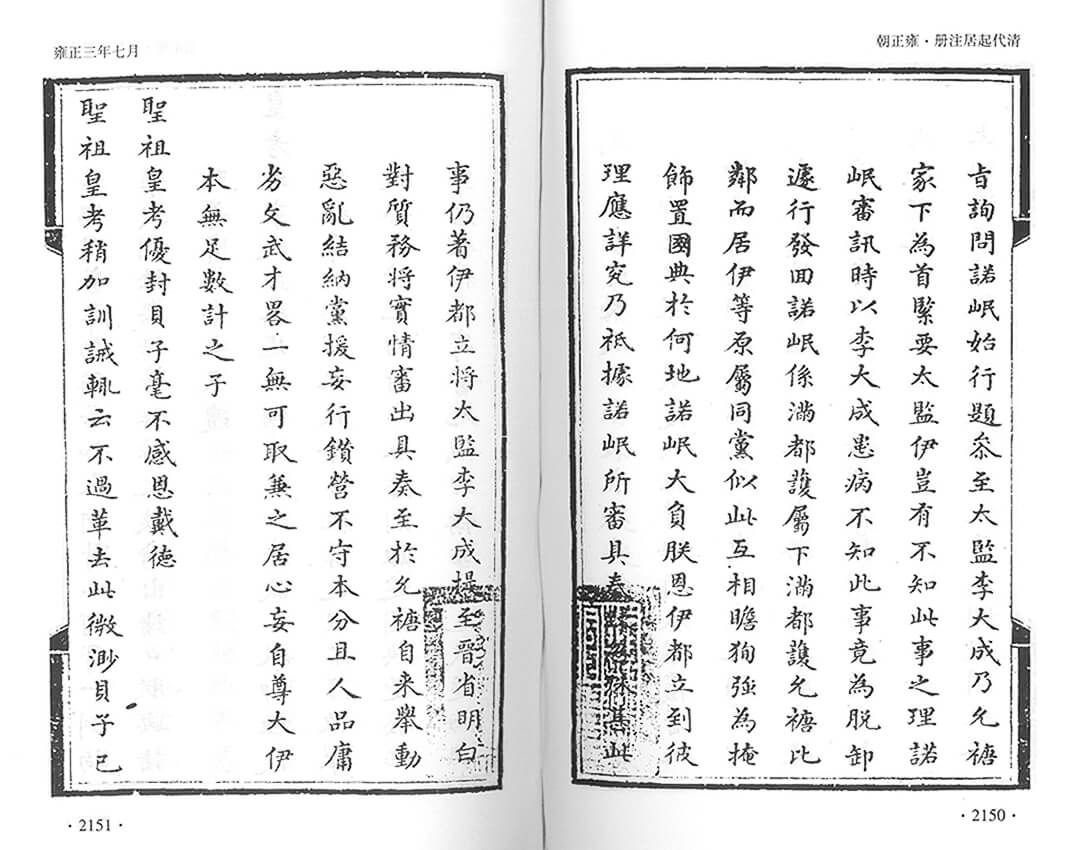 清代起居注册·雍正朝
旨詢問諾岷始行題叅至太監李大成乃允禟
家下為首緊要太監伊豈有不知此事之理諾
岷審訊時以李大成患病不知此事竟為脫卸
遽行發回諾岷係滿都護屬下滿都護允禟比
鄰而居伊等原屬同黨似此互相瞻狥強為掩
飾置國典於何地諾岷大負朕恩伊都立到彼
理應詳究乃祗據諾岷所審具奏此
·2150·
雍正三年七月
事仍著伊都立將太監李大成提至晉省明白
對質務將實情審出具奏至於允禟自來舉動
惡亂結納黨援妄行鑽營不守本分且人品庸
劣文武才畧一無可取兼之居心妄自尊大伊
本無足數計之子
聖祖皇考優封貝子毫不感恩戴德
聖祖皇考稍加訓誡輒云不過革去此微渺貝子已
·2151·